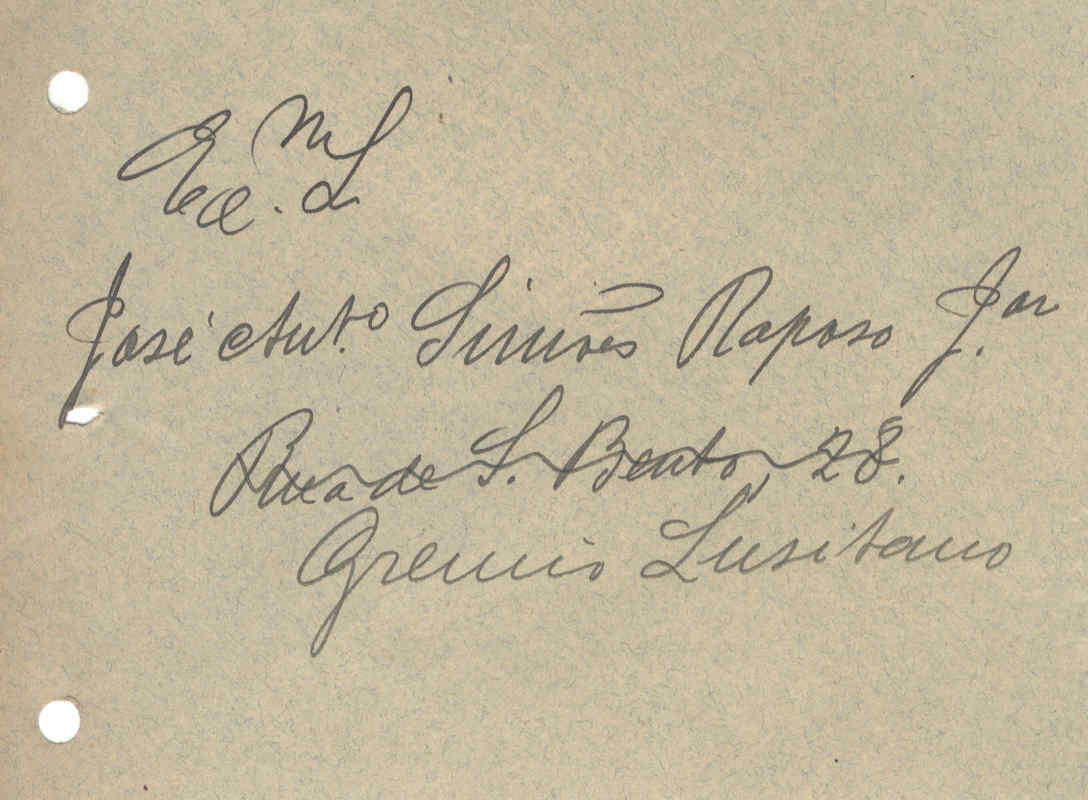 José Ant.º Simões Raposo J.or
Rua de S. Bento 28.
Gremio Lusitano